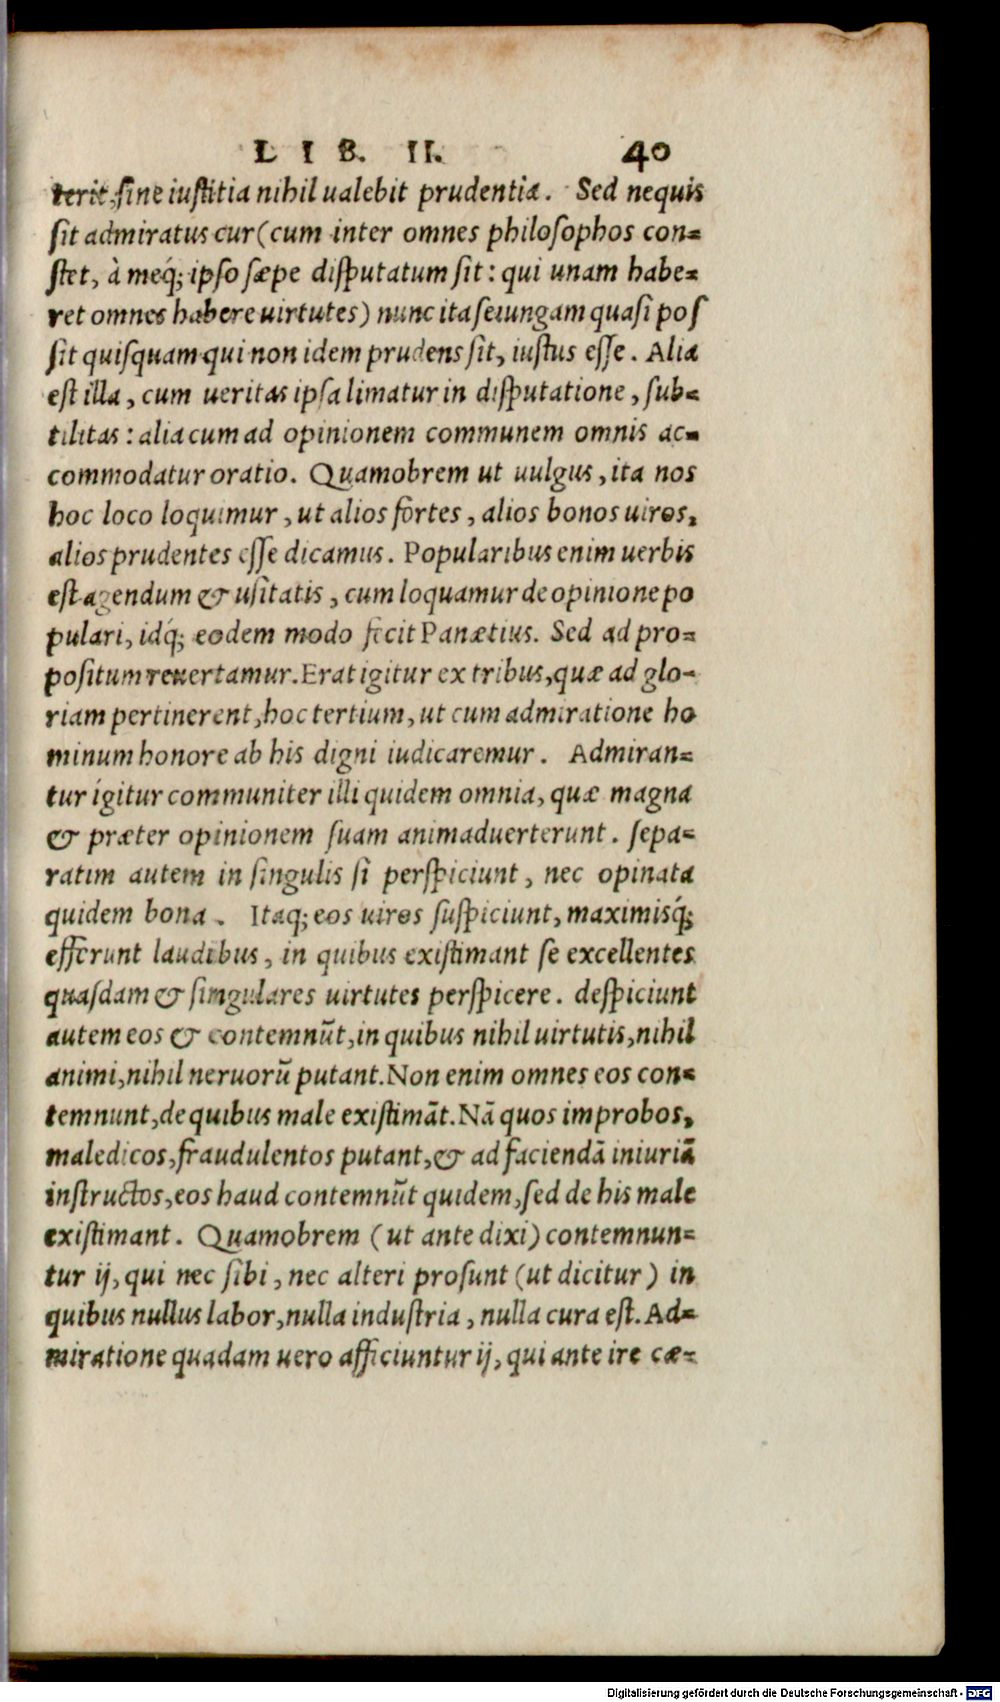 LIB. II. 40
terit, sine iustitia nihil ualebit prudentia. Sed nequis
sit admiratus cur (cum inter omnes philosophos con=
stet, à meq́; ipso sæpe disputatum sit: qui unam habe=
ret omnes habere uirtutes) nunc ita seiungam quasi pos
sit quisquam qui non idem prudens sit, iustus esse. Alia
est illa, cum ueritas ipsa limatur in disputatione, sub=
tilitas: alia cum ad opinionem communem omnis ac=
commodatur oratio. Quamobrem ut uulgus, ita nos
hoc loco loquimur, ut alios fortes, alios bonos uiros,
alios prudentes esse dicamus. Popularibus enim uerbis
est agendum & usitatis, cum loquamur de opinione po
pulari, idq́; eodem modo fecit Panætius. Sed ad pro=
positum reuertamur. Erat igitur ex tribus, quæ ad glo=
riam pertinerent, hoc tertium, ut cum admiratione ho
minum honore ab his digni iudicaremur. Admiran=
tur igitur communiter illi quidem omnia, quæ magna
& præter opinionem suam animaduerterunt. sepa=
ratim autem in singulis si perspiciunt, nec opinata
quidem bona. Itaq; eos uiros suspiciunt, maximisq́;
efferunt laudibus, in quibus existimant se excellentes
quasdam & singulares uirtutes perspicere. despiciunt
autem eos & contemnūt, in quibus nihil uirtutis, nihil
animi, nihil neruorū putant. Non enim omnes eos con=
temnunt, de quibus male existimāt. Nā quos improbos,
maledicos, fraudulentos putant, & ad faciendā iniuriā
instructos, eos haud contemnūt quidem, sed de his male
existimant. Quamobrem (ut ante dixi) contemnun=
tur ij, qui nec sibi, nec alteri prosunt (ut dicitur) in
quibus nullus labor, nulla industria, nulla cura est. Ad=
miratione quadam uero afficiuntur ij, qui ante ire cæ=
Digitalisierung gefördert durch die Deutsche Forschungsgemeinschaft - DFG